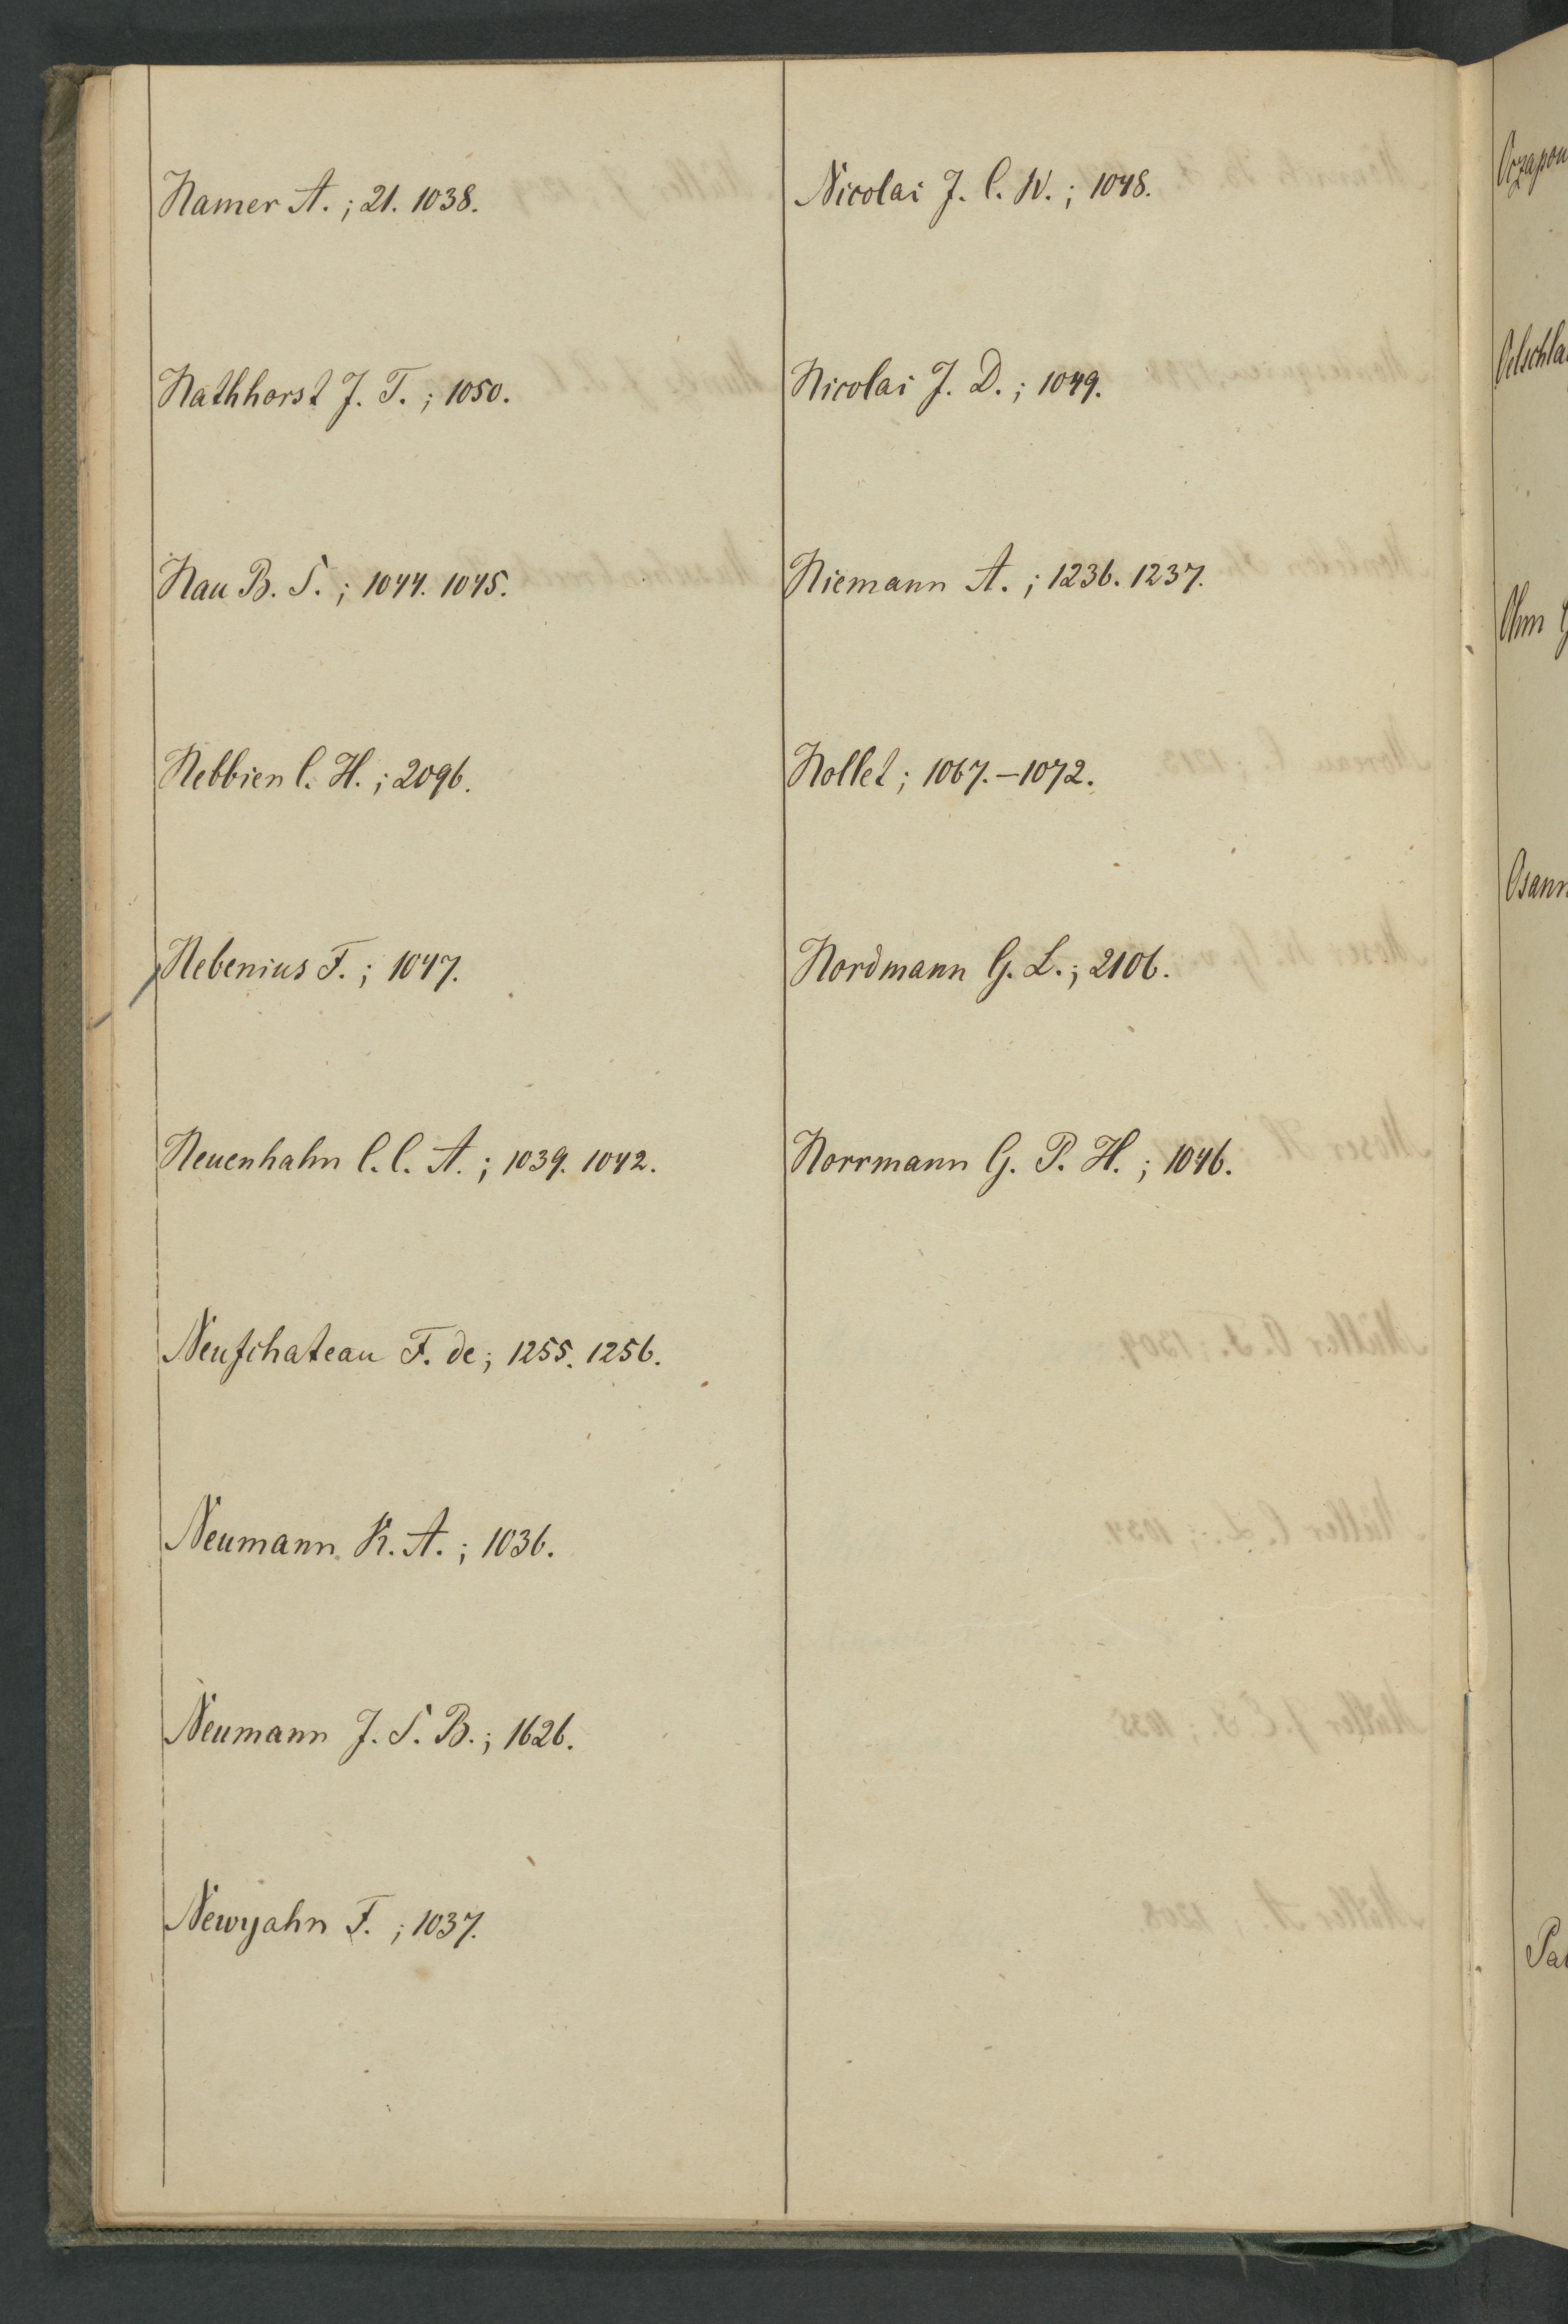 Namer A.; 21. 1038.
Nathhorst J. T.; 1050.
Nau B. S.; 1044. 1045.
Nebbien C. H.; 2096.
Nebenius F.; 1047.
Neuenhahn C. C. A.; 1039. 1042.
Neufchateau F. de; 1255. 1256.
Neumann K. A.; 1036.
Neumann J. S. B.; 1626.
Newyahn F.; 1037.
Nicolai J. C. W.; 1048.
Nicolai J. D.; 1049.
Niemann A.; 1236. 1237.
Nollet; 1067.–1072.
Nordmann G. L.; 2106.
Norrmann G. P. H.; 1046.
Oczapow
Oelschla
Ohm G
Osann